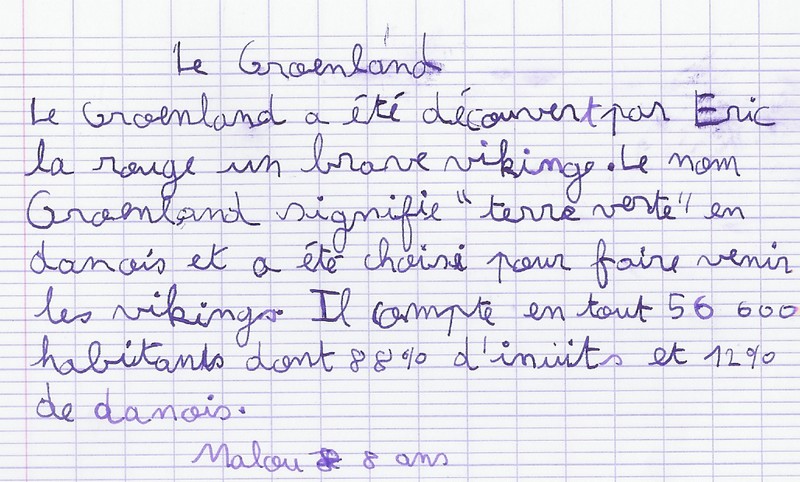 Le Groenland
Le Groenland a été découvert par Eric
la rouge un brave vikings. Le nom
Groenland signifie "terre verte" en
danois et a été choisi pour faire venir
les vikings. Il compte en tout 56 600
habitants dont 88% d'inuits et 12%
de danois.
Malou 8 ans